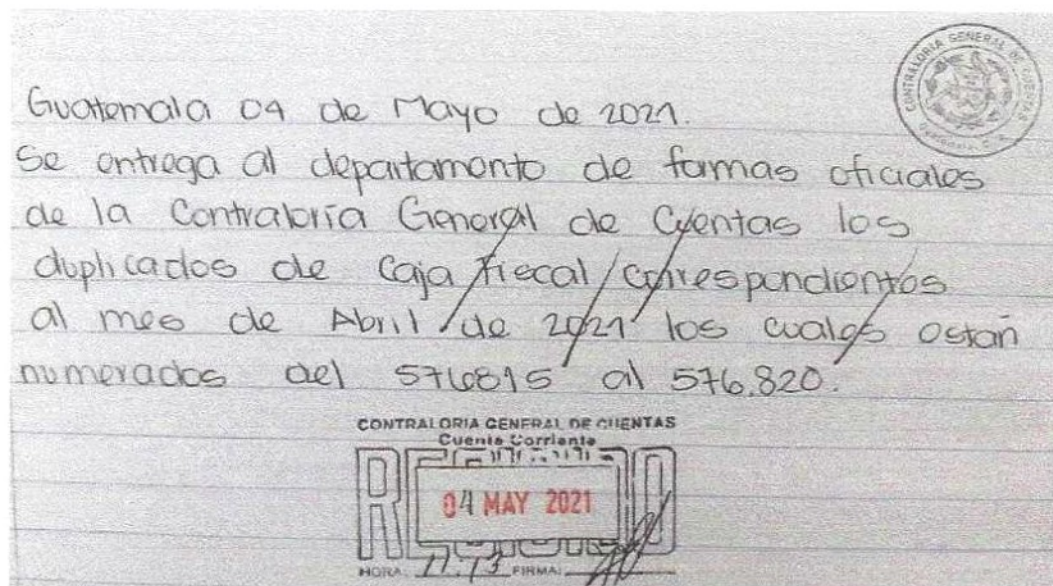 CONTRALORIA GENERAL DE CUENTAS
Guatemala 04 de Mayo de 2021.
Se entrega al departamento de formas oficiales
de la Contraloría General de Cuentas los
duplicados de Caja Fiscal correspondientes
al mes de Abril de 2021 los cuales están
numerados del 576815 al 576,820.
CONTRALORIA GENERAL DE CUENTAS
Cuenta Corriente
RECIBIDO
04 MAY 2021
HORA: 11:13 FIRMA: